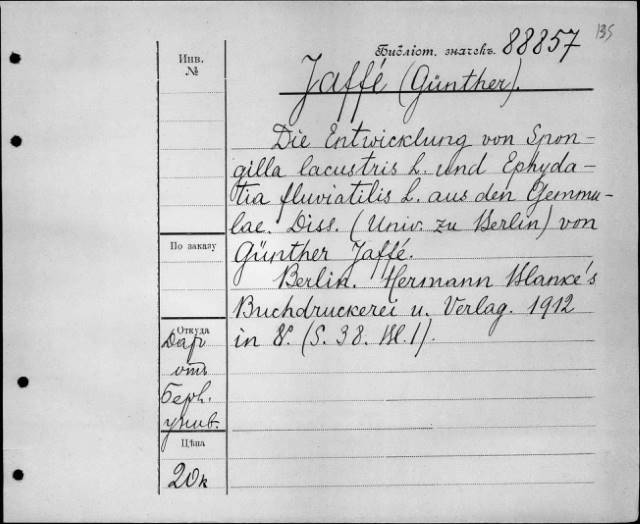 135
Библіот. значекъ. 88857
Инв. №
Jaffé (Günther).
Die Entwicklung von Spon-
gilla lacustris L. und Ephyda-
tia fluviatilis L. aus den Gemmu-
lae. Diss. (Univ. zu Berlin) von
Günther Jaffé.
Berlin. Hermann Blanke's
Buchdruckerei u. Verlag. 1912
in 8º. (S. 38. Bl. 1).
По заказу
Откуда
Дар
отъ
Берл.
унив.
Цѣна
20к